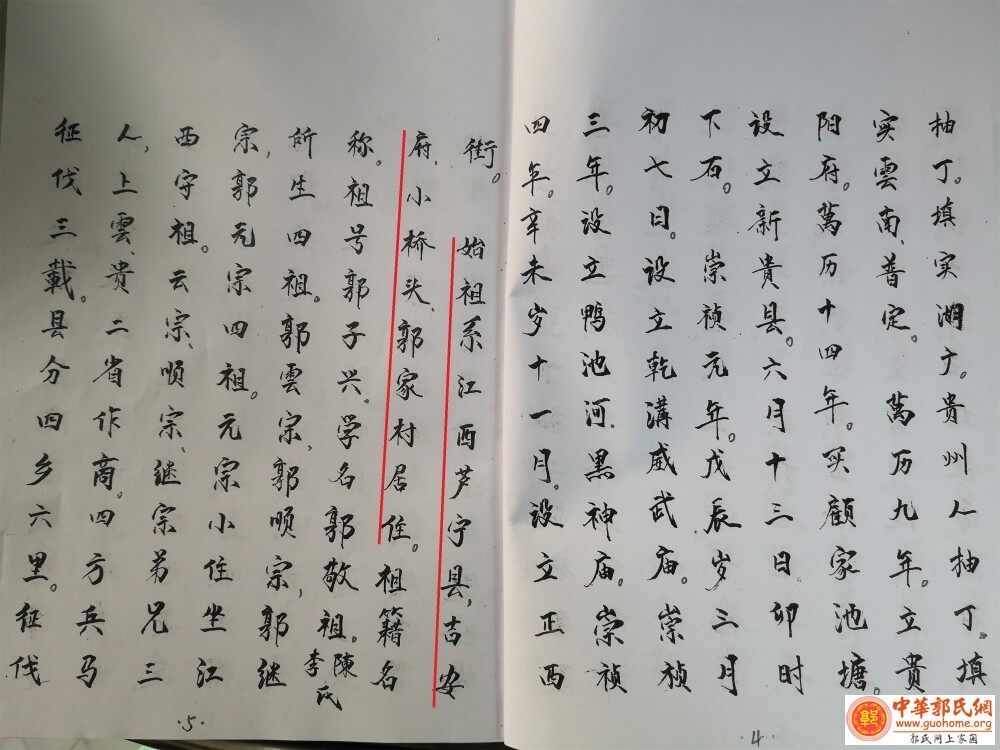 抽丁。填实湖广。贵州人抽丁。填
实雲南、普定。萬历九年。立贵
阳府。萬历十四年。买顧家池塘。
设立新贵县。六月十三日卯时
下石。崇祯元年。戊辰岁三月
初七日。设立乾溝威武庙。崇祯
三年。设立鸭池河.黑神庙。崇祯
四年。辛未岁十一月。设立正西
4
街。始祖系江西芦宁县,吉安
府、小桥头、郭家村居住。祖籍名
称。祖号郭子兴。学名郭敬祖。陳李氏
所生四祖。郭雲宗、郭顺宗,郭继
宗,郭元宗四祖。元宗小住坐江
西守祖。云宗、顺宗、继宗弟兄三
人,上雲、贵二省作商。四方兵马
征伐三載。县分四乡六里。征伐
·5·
中華郭氏網
www.guohome.org
郭氏网上家园